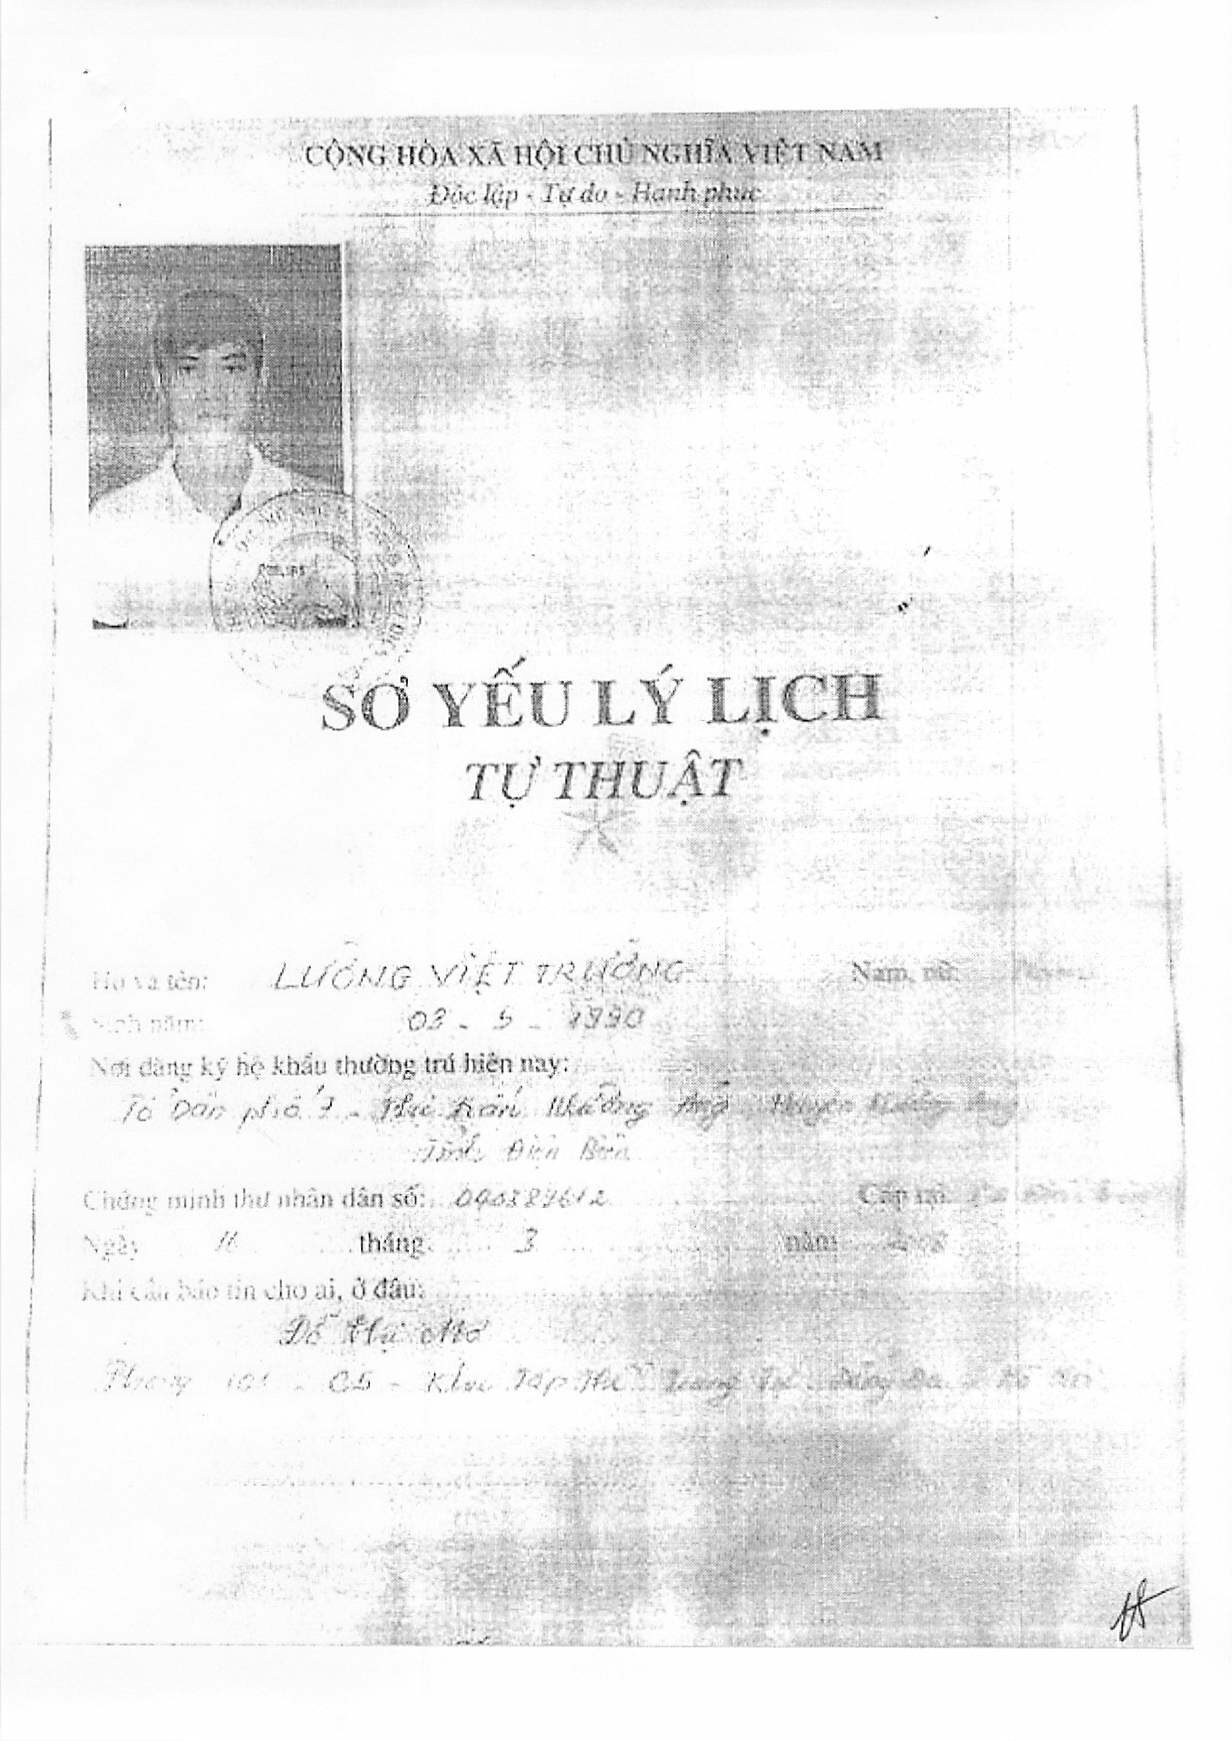 CỘNG HÒA XÃ HỘI CHỦ NGHĨA VIỆT NAM
Độc lập - Tự do - Hạnh phúc
SƠ YẾU LÝ LỊCH
TỰ THUẬT
Họ và tên: LƯỜNG VIỆT TRƯỜNG Nam, nữ:
Sinh năm: 03 - 5 - 1990
Nơi đăng ký hộ khẩu thường trú hiện nay:
Tổ Dân phố 7 - Thị trấn Mường Ảng Huyện Mường Ảng
Tỉnh Điện Biên
Chứng minh thư nhân dân số: Cấp tại:
Ngày 11 tháng 3 năm 2008
Khi cần báo tin cho ai, ở đâu:
Đỗ Thị Mơ
Phòng 101 - C5 - Khu Tập Thể Trung Tự Đống Đa Hà Nội